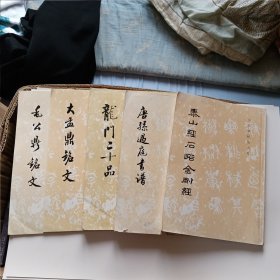 毛公鼎铭文
大盂鼎铭文
龍門二十品
唐孫過庭書譜
泰山經石峪金剛經